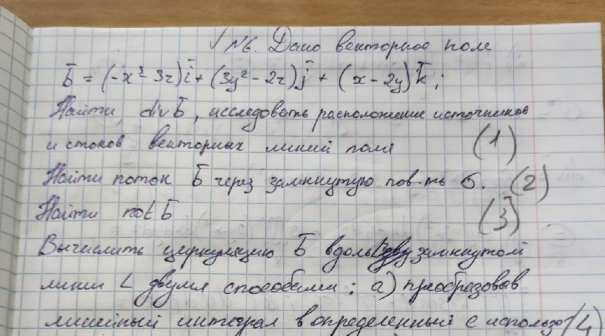 №6. Дано векторное поле
Б̄ = (-x² - 3z) ī + (3y² - 2z) j̄ + (x - 2y) k̄ ;
Найти div Б̄, исследовать расположение источников
и стоков векторных линий поля (1)
Найти поток Б̄ через замкнутую пов-ть б. (2)
Найти rot Б̄ (3)
Вычислить циркуляцию Б̄ вдоль замкнутой
линии L двумя способами: а) преобразовав
линейный интеграл в определенный с использо (4)